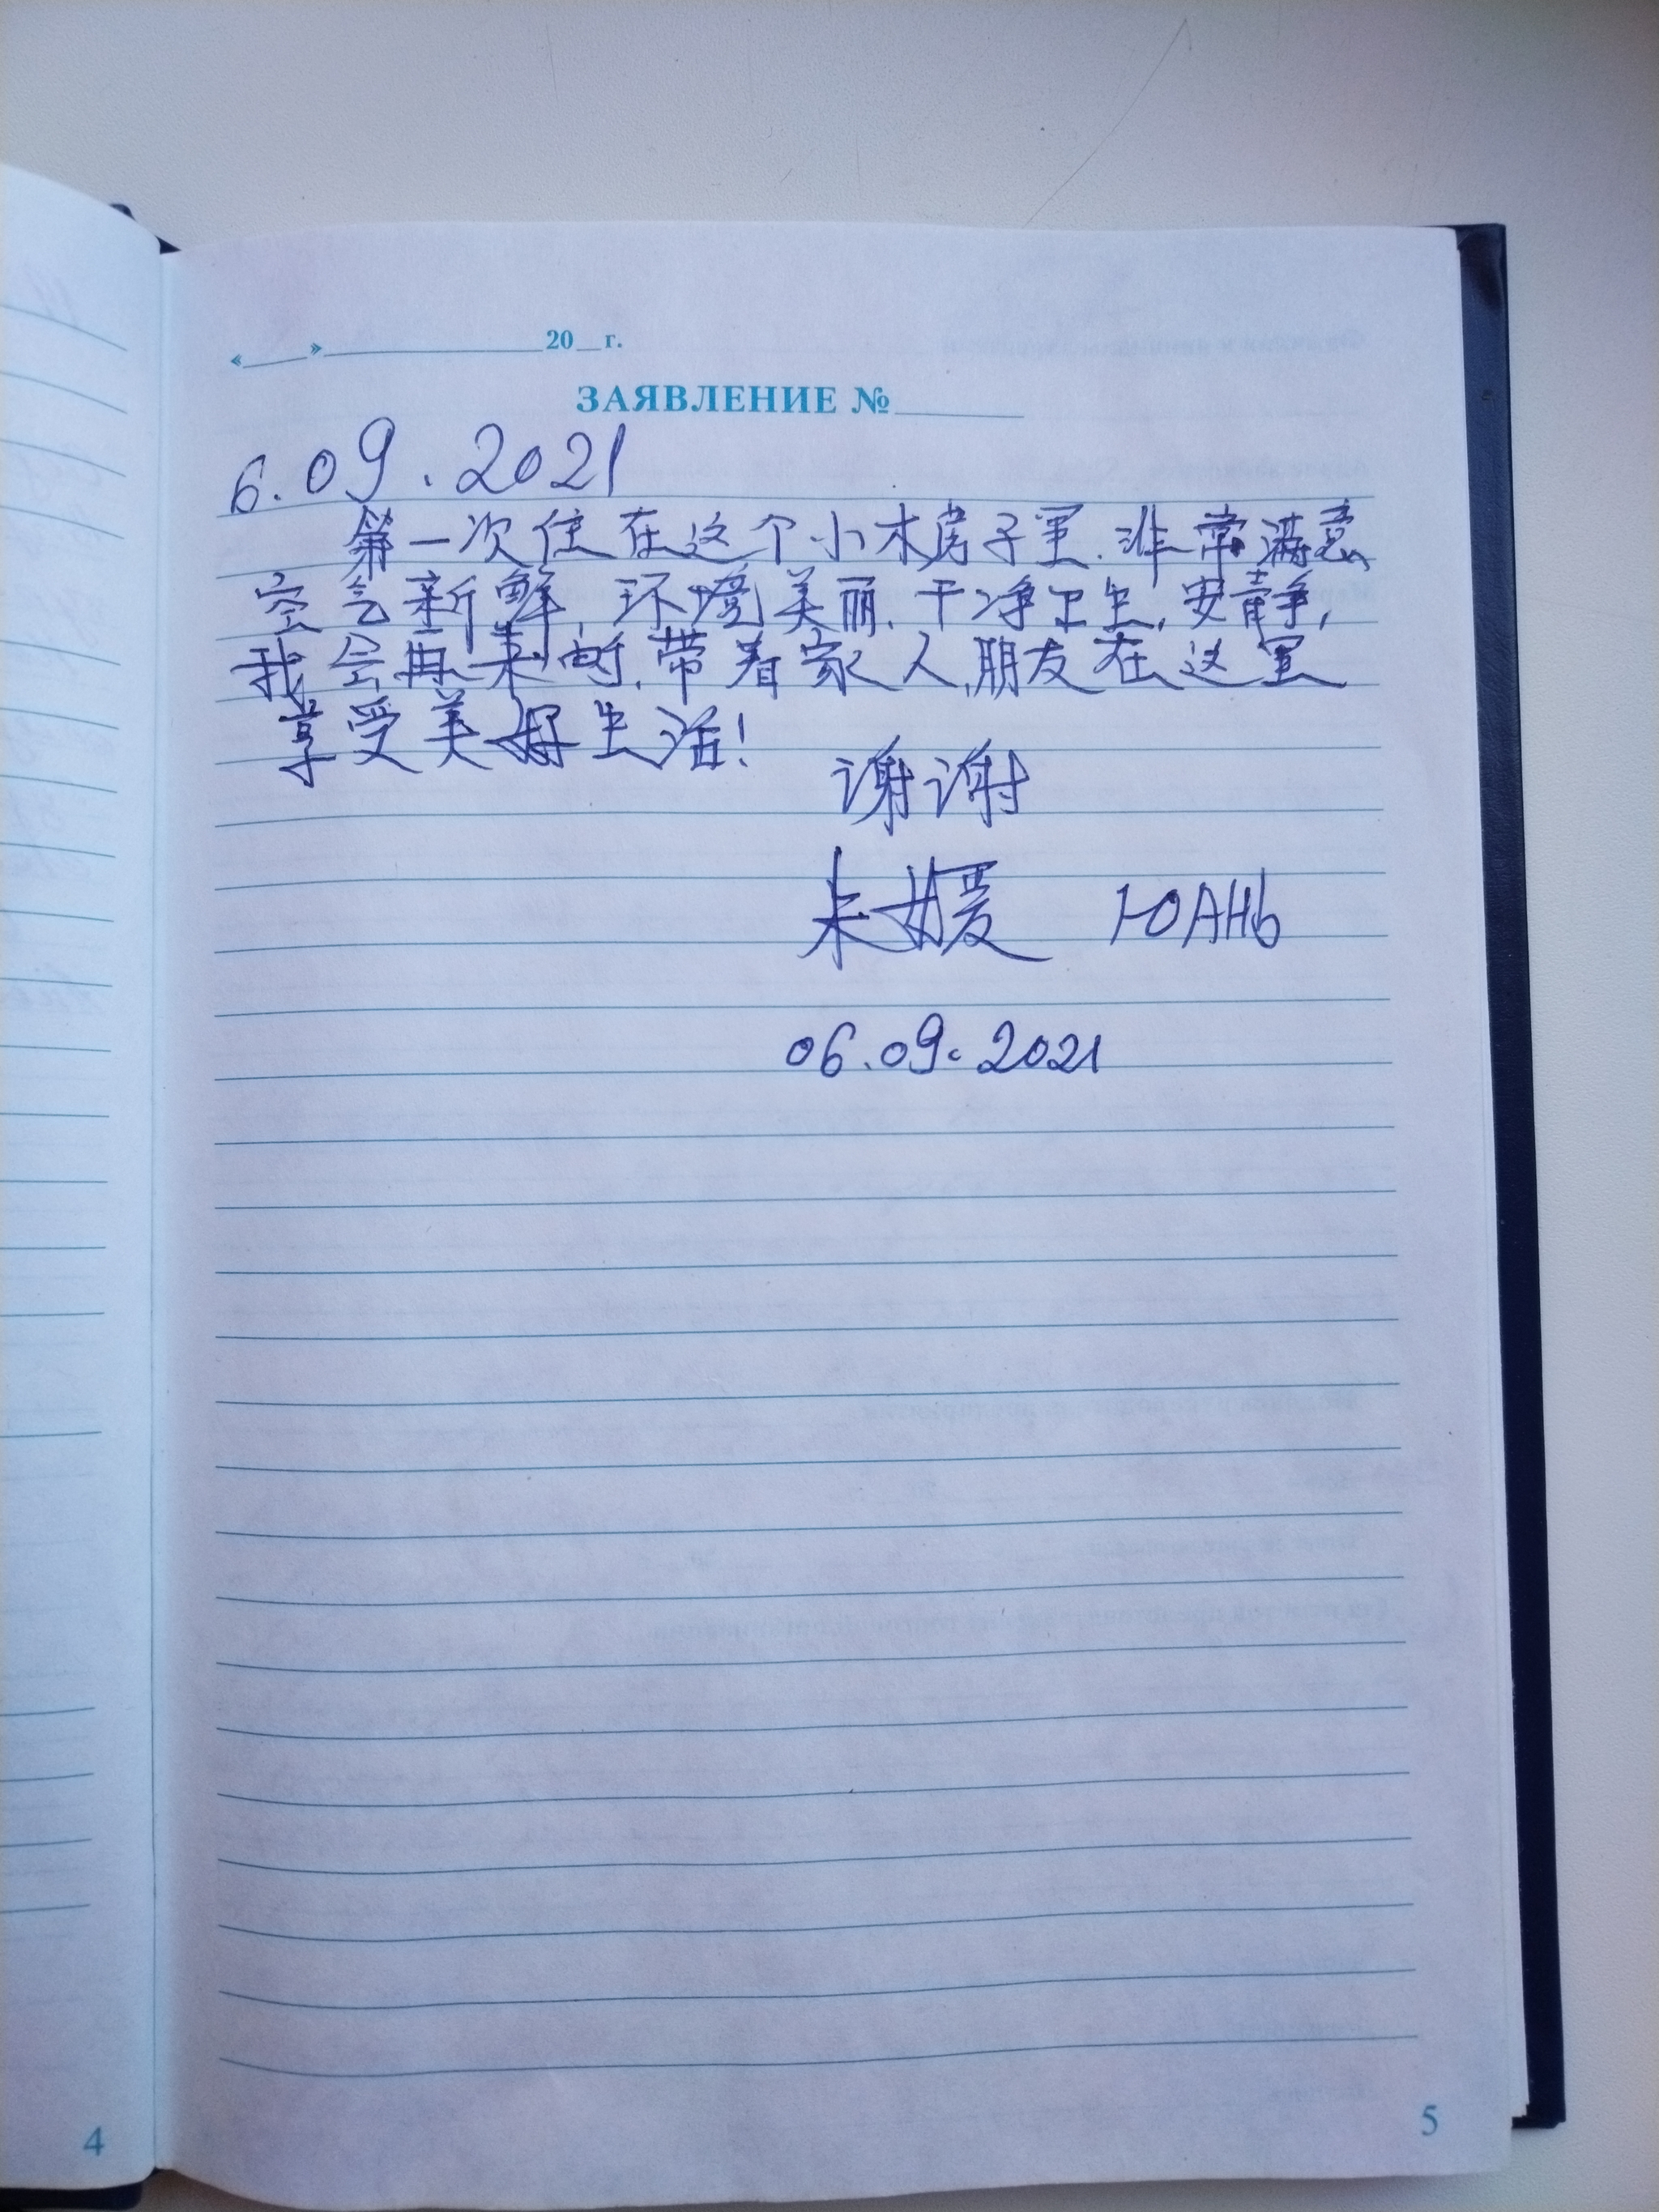 «____»______________20__г.
ЗАЯВЛЕНИЕ №________
6.09.2021
第一次住在这个小木房子里.非常满意
空气新鲜,环境美丽.干净卫生,安静,
我会再来的,带着家人,朋友在这里
享受美好生活!
谢谢
朱媛 ЮАНЬ
06.09.2021
4
5